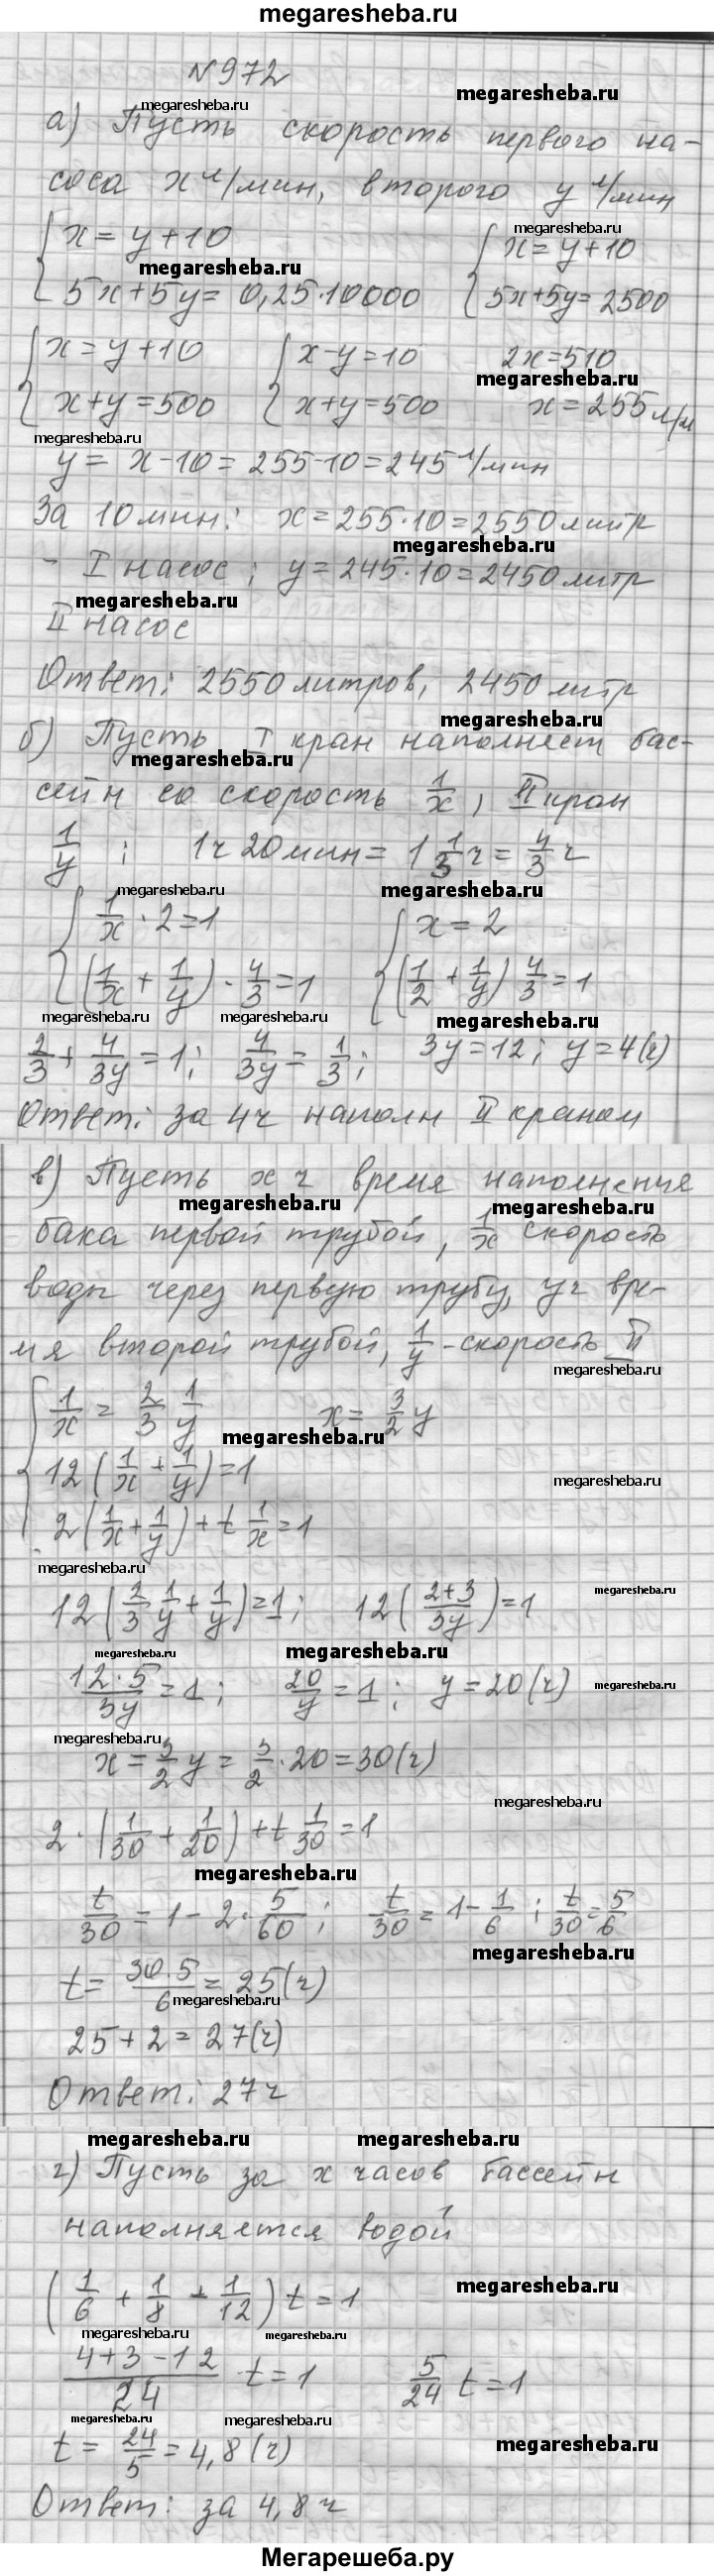 megaresheba.ru
N972
megaresheba.ru megaresheba.ru
а) Пусть скорость первого на-
соса x л/мин, второго y л/мин
megaresheba.ru
{x = y + 10 {x = y + 10
megaresheba.ru
5x + 5y = 0,25·10000 5x + 5y = 2500
{x = y + 10 {x - y = 10 2x = 510
megaresheba.ru
x + y = 500 x + y = 500 x = 255 л/м
megaresheba.ru
y = x - 10 = 255 - 10 = 245 л/мин
За 10 мин: x = 255·10 = 2550 литр
megaresheba.ru
- I насос; y = 245·10 = 2450 литр
megaresheba.ru
II насос
Ответ: 2550 литров, 2450 литр
megaresheba.ru
б) Пусть I кран наполняет бас-
megaresheba.ru
сейн со скорость 1/x, II кран
1/y ; 1ч 20мин = 1 1/3 ч = 4/3 ч
megaresheba.ru megaresheba.ru
{1/x · 2 = 1 {x = 2
(1/x + 1/y) · 4/3 = 1 (1/2 + 1/y) 4/3 = 1
megaresheba.ru megaresheba.ru megaresheba.ru
2/3 + 4/3y = 1; 4/3y = 1/3; 3y = 12; y = 4(ч)
Ответ: за 4ч наполн II краном
в) Пусть x ч время наполнения
megaresheba.ru megaresheba.ru
бака первой трубой, 1/x скорость
воды через первую трубу, y ч вре-
мя второй трубой, 1/y - скорость II
megaresheba.ru
{1/x = 2/3 1/y x = 3/2 y
megaresheba.ru
12(1/x + 1/y) = 1
megaresheba.ru
2(1/x + 1/y) + t 1/x = 1
megaresheba.ru
12(2/3 1/y + 1/y) = 1; 12((2+3)/3y) = 1
megaresheba.ru
megaresheba.ru megaresheba.ru
12·5/3y = 1; 20/y = 1; y = 20(ч)
megaresheba.ru
megaresheba.ru
x = 3/2 y = 3/2 · 20 = 30(ч)
megaresheba.ru
2·(1/30 + 1/20) + t 1/30 = 1
megaresheba.ru
t/30 = 1 - 2·5/60; t/30 = 1 - 1/6; t/30 = 5/6
megaresheba.ru
t = 30·5/6 = 25(ч)
megaresheba.ru
25 + 2 = 27(ч)
Ответ: 27ч
megaresheba.ru megaresheba.ru
г) Пусть за x часов бассейн
наполняется водой
(1/6 + 1/8 - 1/12) t = 1
megaresheba.ru
megaresheba.ru megaresheba.ru
4+3-12/24 · t = 1 5/24 t = 1
megaresheba.ru megaresheba.ru
t = 24/5 = 4,8(ч)
megaresheba.ru
Ответ: за 4,8ч
Мегарешеба.ру